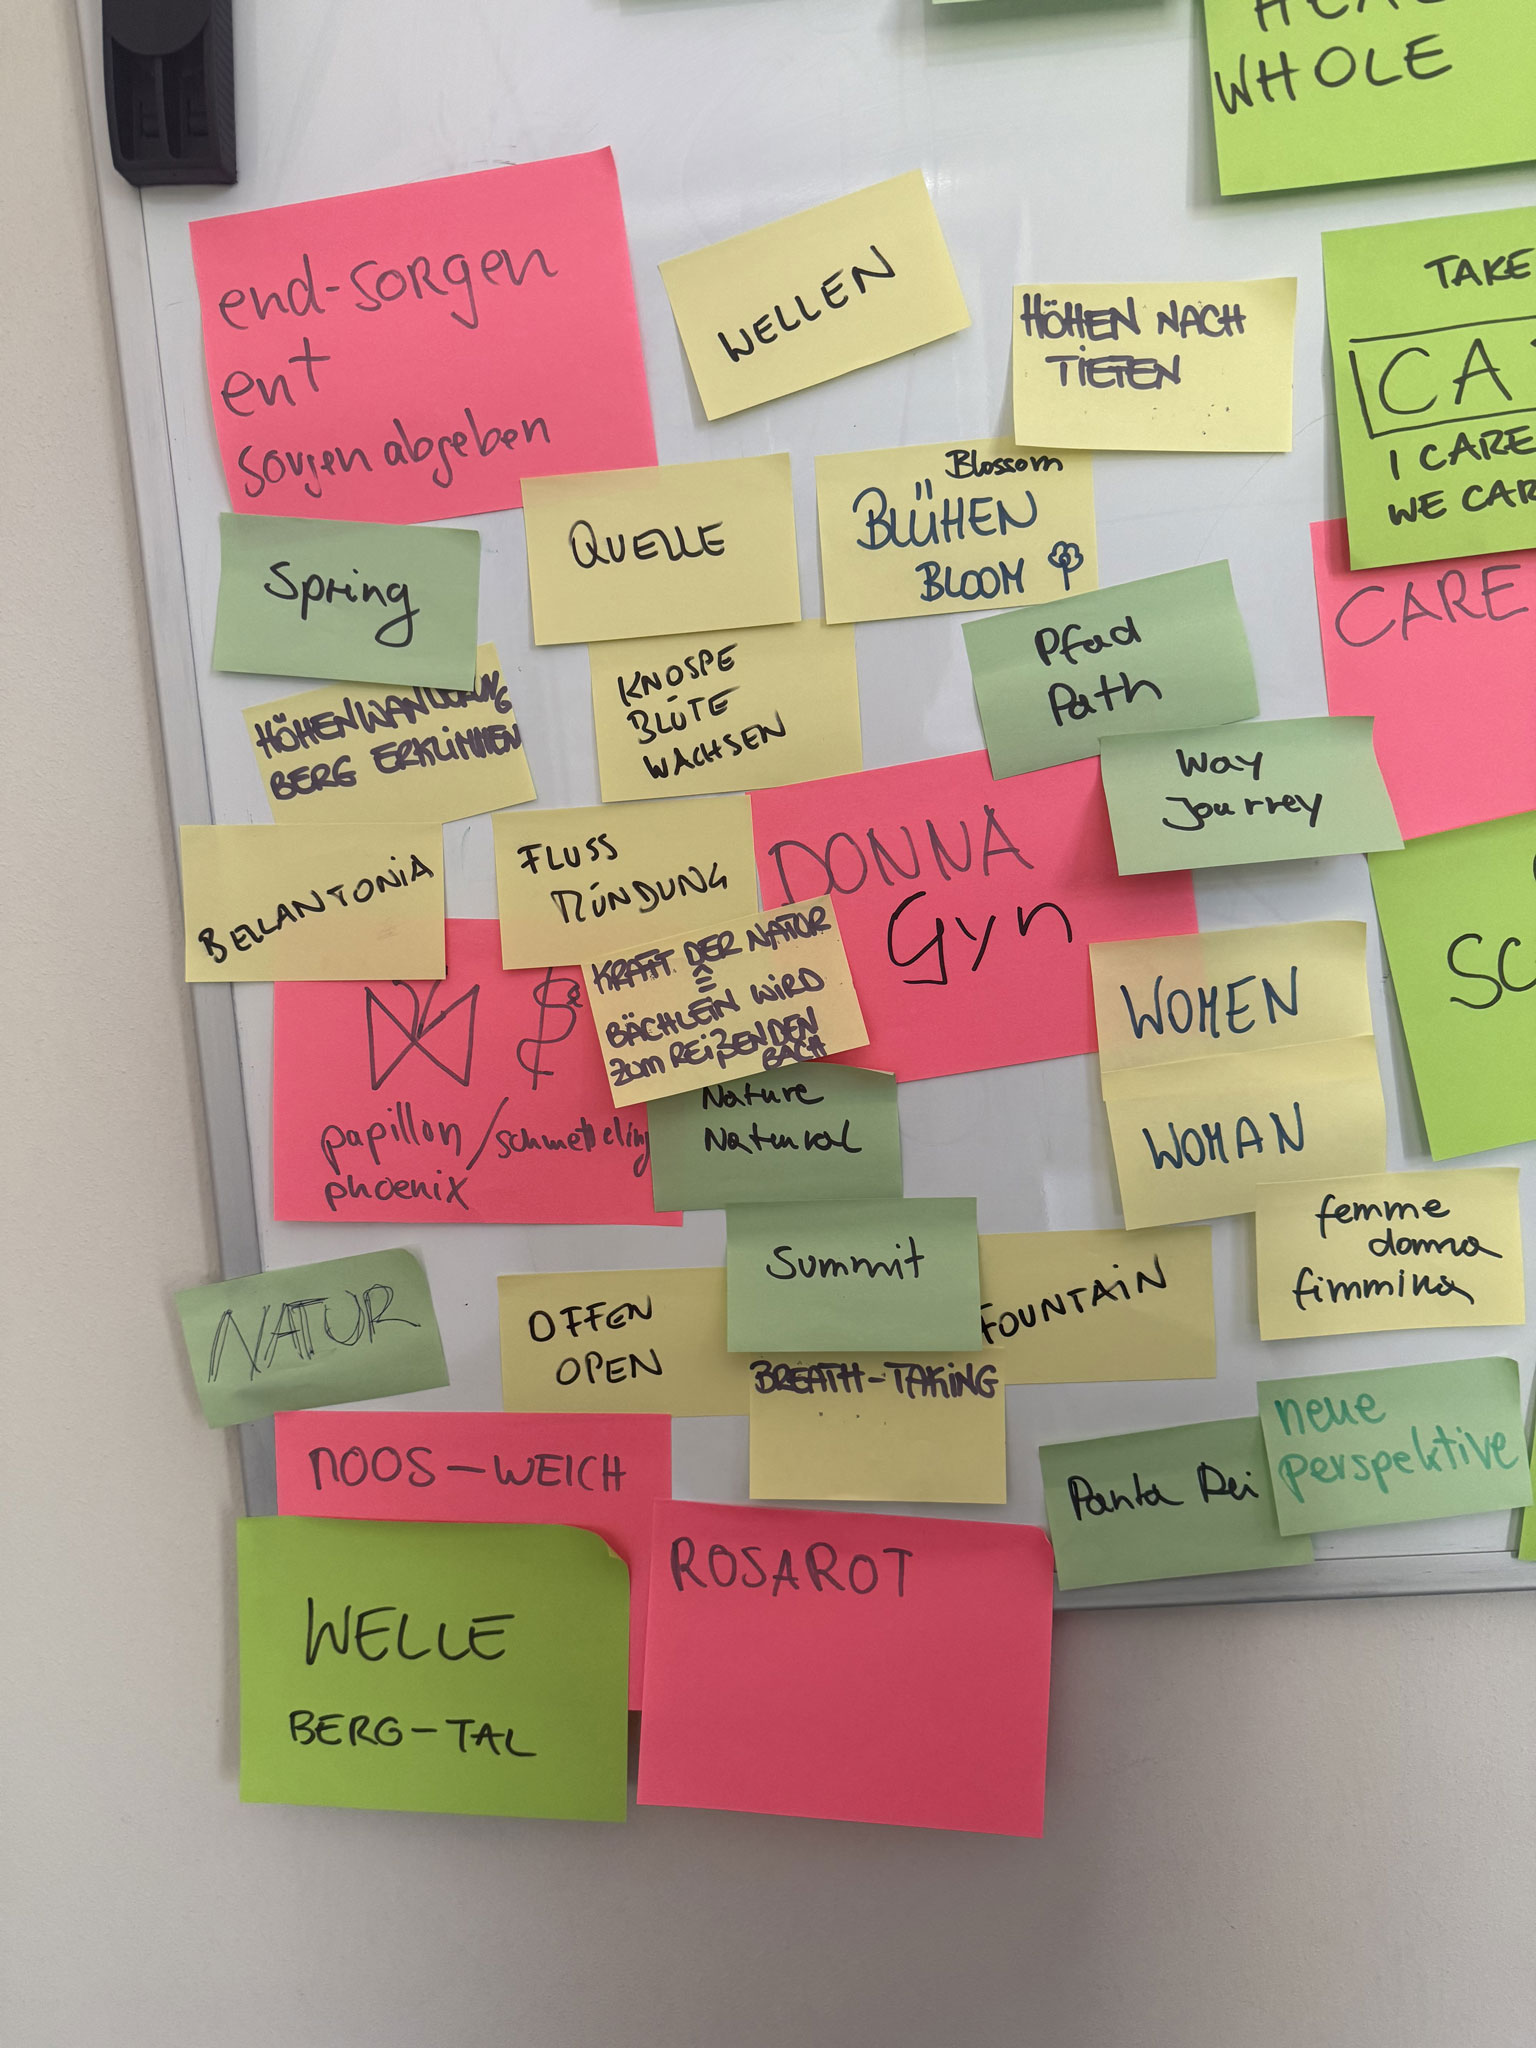 WHOLE
end-sorgen
ent
sorgen abgeben
WELLEN
HÖHEN NACH
TIEFEN
TAKE
I CARE
WE CAR
Spring
QUELLE
Blossom
BLÜHEN
BLOOM
CARE
HÖHENWANDERUNG
BERG ERKLIMMEN
KNOSPE
BLÜTE
WACHSEN
Pfad
Path
Way
Journey
BELLANTONIA
FLUSS
MÜNDUNG
DONNA
Gyn
KRAFT DER NATUR
≙
BÄCHLEIN WIRD
ZUM REIßENDEN
BACH
WOMEN
SC
papillon/schmetteling
phoenix
Nature
Natural
WOMAN
femme
donna
fimmina
NATUR
OFFEN
OPEN
Summit
FOUNTAIN
BREATH-TAKING
MOOS-WEICH
Panta Rei
neue
perspektive
WELLE
BERG-TAL
ROSAROT